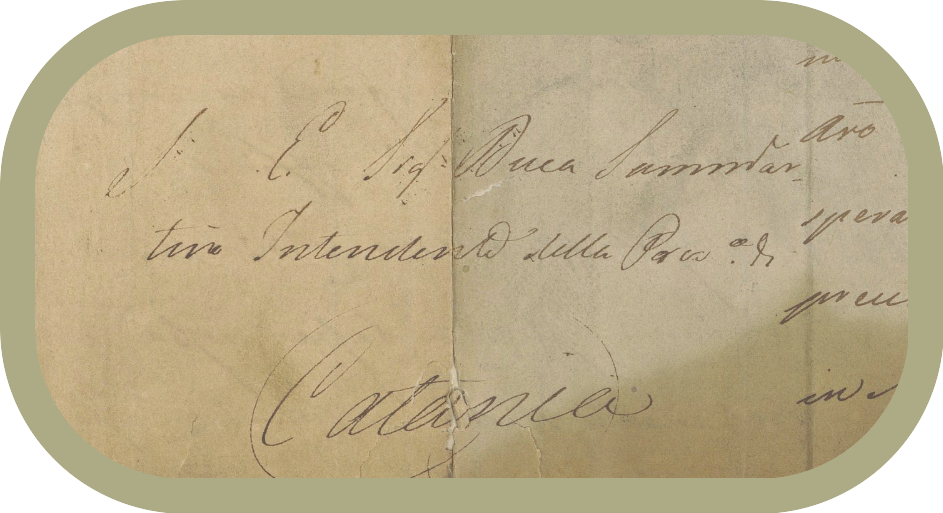 S. E. Sigr. Duca Sammar-
tino Intendente della Prova. di
Catania
Aro
spera
preu